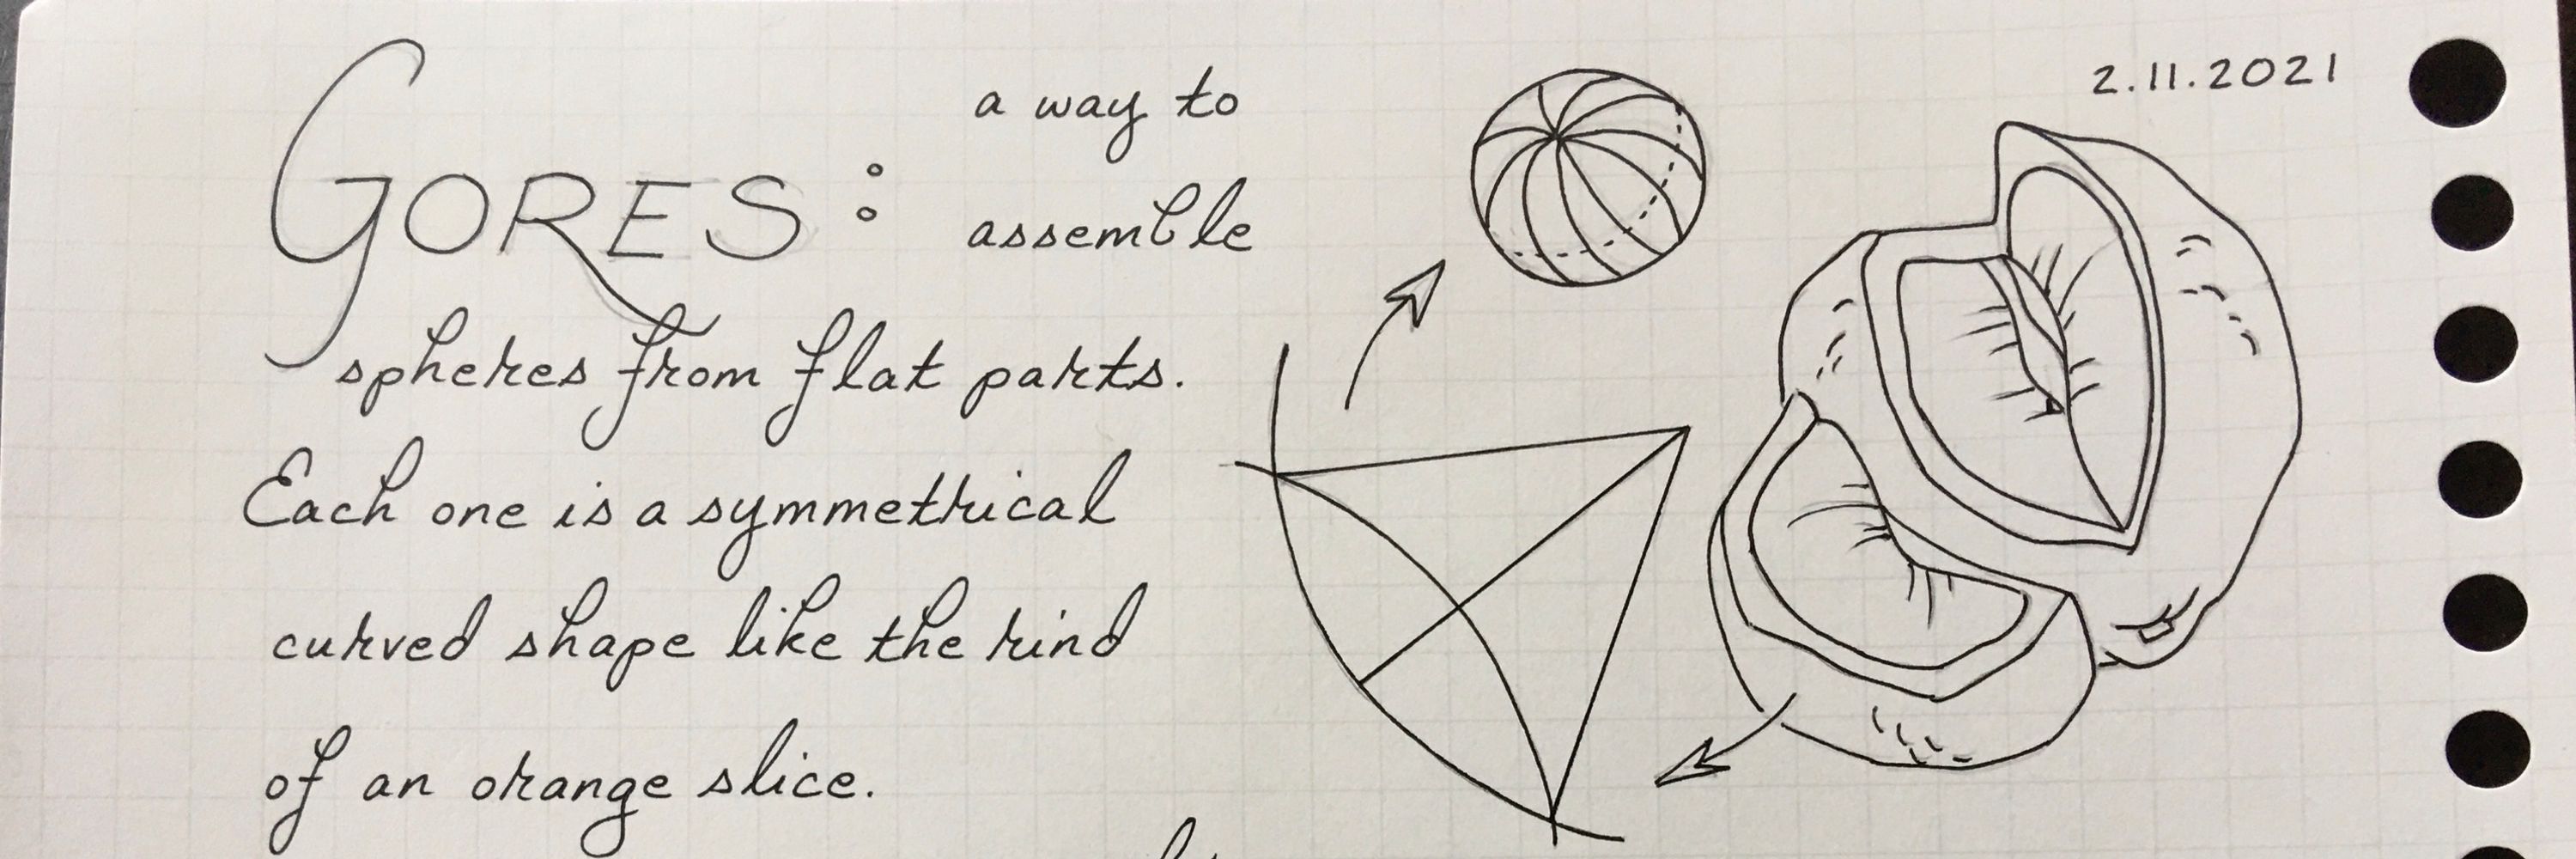 GORES: a way to
assemble
spheres from flat parts.
Each one is a symmetrical
curved shape like the rind
of an orange slice.
2.11.2021